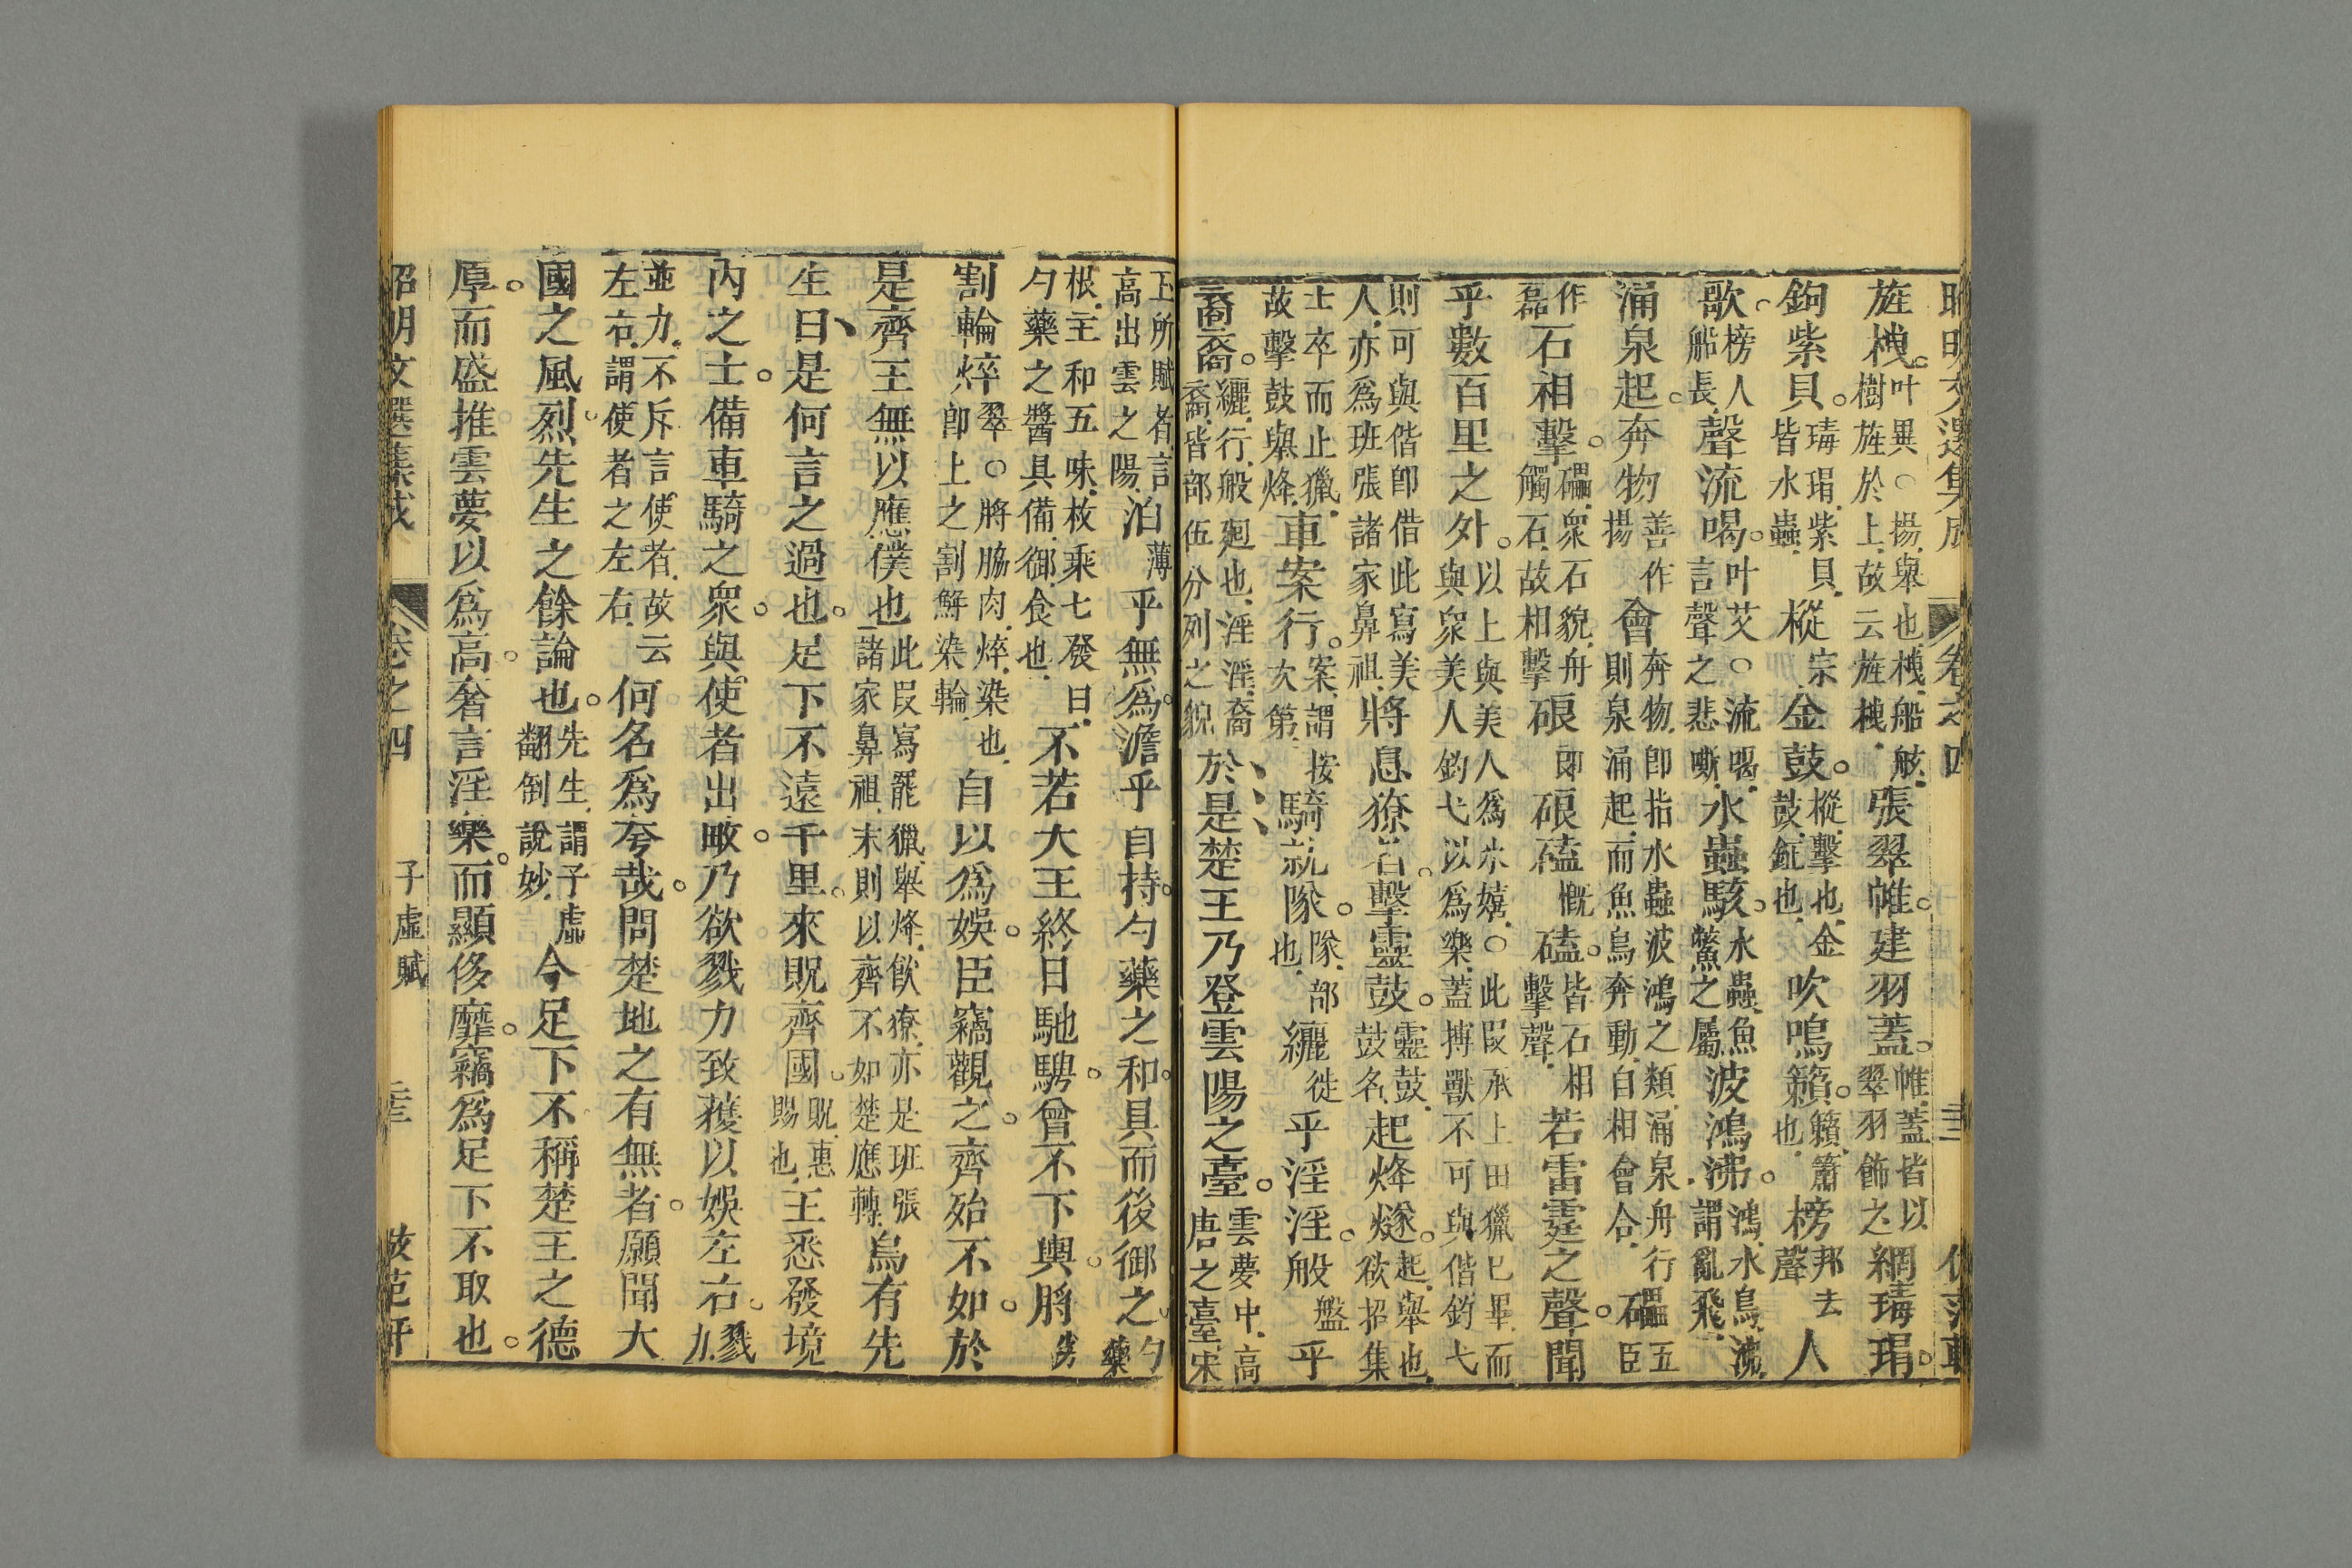 昭明文選集成 卷之四
旌栧叶異○揚舉也栧船舷樹旌於上故云旌栧張翠帷建羽蓋帷蓋皆以翠羽飾之網瑇瑁
鉤紫貝瑇瑁紫貝皆水蟲樅宗金鼓樅擊也金鼓鉦也吹鳴籟籟簫也榜邦去聲人
歌榜人船長聲流喝叶艾○流喝言聲之悲嘶水蟲駭水蟲魚鱉之屬波鴻沸鴻水鳥沸謂亂飛
涌泉起奔物善作揚會奔物卽指水蟲波鴻之類涌泉舟行則泉涌起而魚鳥奔動自相會合礧五臣
作磊石相擊礧衆石貌舟觸石故相擊硠卽硠磕慨磕皆石相擊聲若雷霆之聲聞
乎數百里之外以上與美人爲水嬉○此段承上田獵已畢而與衆美人釣弋以爲樂蓋搏獸不可與偕釣弋
則可與偕卽借此寫美人亦爲班張諸家鼻祖將息獠者擊靈鼓靈鼓鼓名起烽燧起舉也欲招集
士卒而止獵故擊鼓舉烽車案行案謂次第按騎就隊隊部也纚徙乎淫淫般盤乎
裔裔纚行般廻也淫淫裔裔皆部伍分列之貌於是楚王乃登雲陽之臺雲夢中高唐之臺宋
玉所賦者言高出雲之陽泊薄乎無爲澹乎自持勺藥之和具而後御之勺藥
根主和五味枚乘七發曰勺藥之醬具備御食也不若大王終日馳騁曾不下輿脟劣
割輪焠翠○將脇肉焠染也卽上之割鮮染輪自以爲娛臣竊觀之齊殆不如於
是齊王無以應僕也此段寫罷獵舉烽飲獠亦是班張諸家鼻祖末則以齊不如楚應轉烏有先
生曰是何言之過也足下不遠千里來貺齊國貺惠賜也王悉發境
內之士備車騎之衆與使者出畋乃欲戮力致獲以娛左右戮力
並力不斥言使者故云左右謂使者之左右何名爲夸哉問楚地之有無者願聞大
國之風烈先生之餘論也先生謂子虛翻倒說妙今足下不稱楚王之德
厚而盛推雲夢以爲高奢言淫樂而顯侈靡竊爲足下不取也
昭明文選集成 卷之四 子虛賦